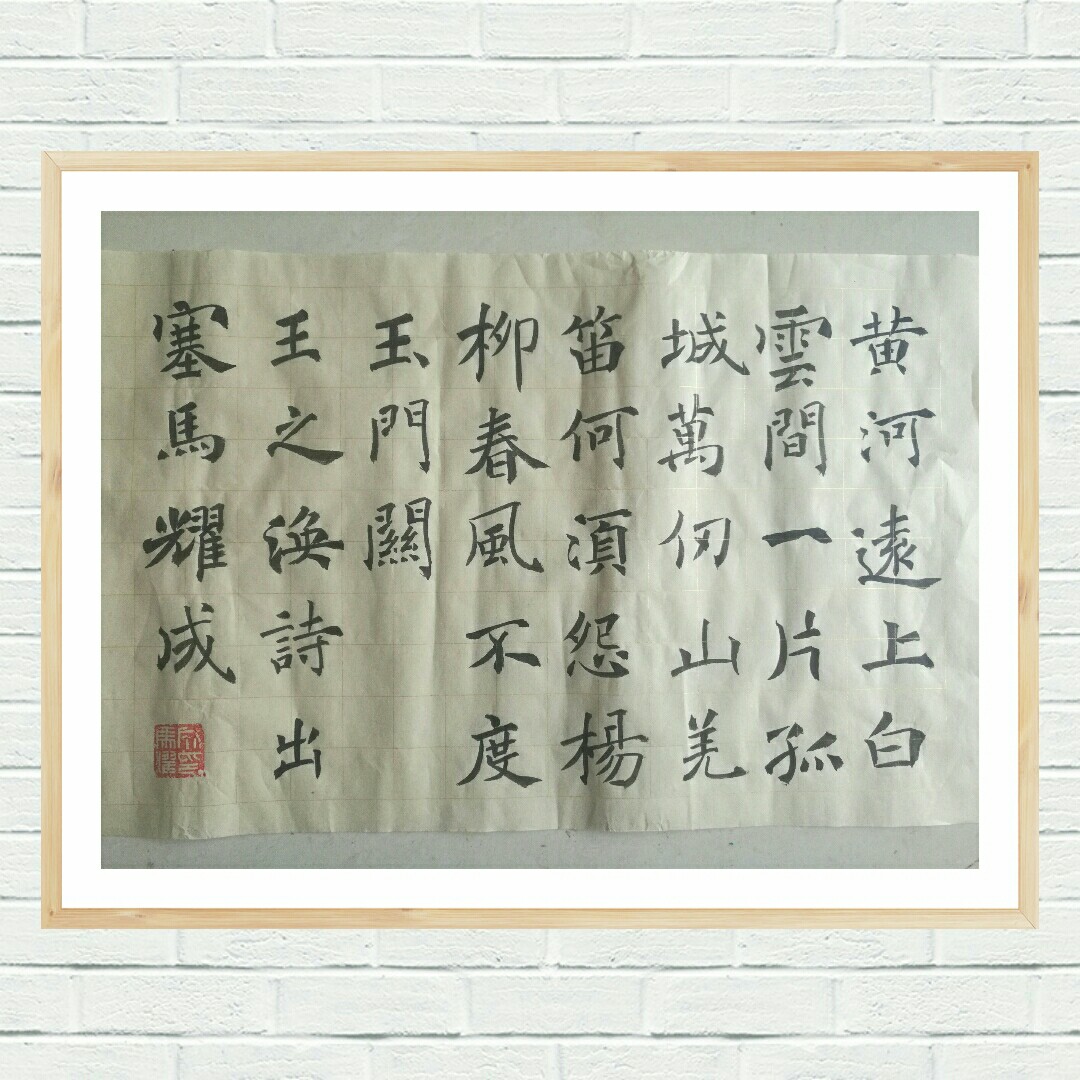 黄河遠上白
雲間一片孤
城萬仞山羌
笛何湏怨楊
柳春風不度
玉門關
王之渙詩出
塞馬耀成
馬耀成印